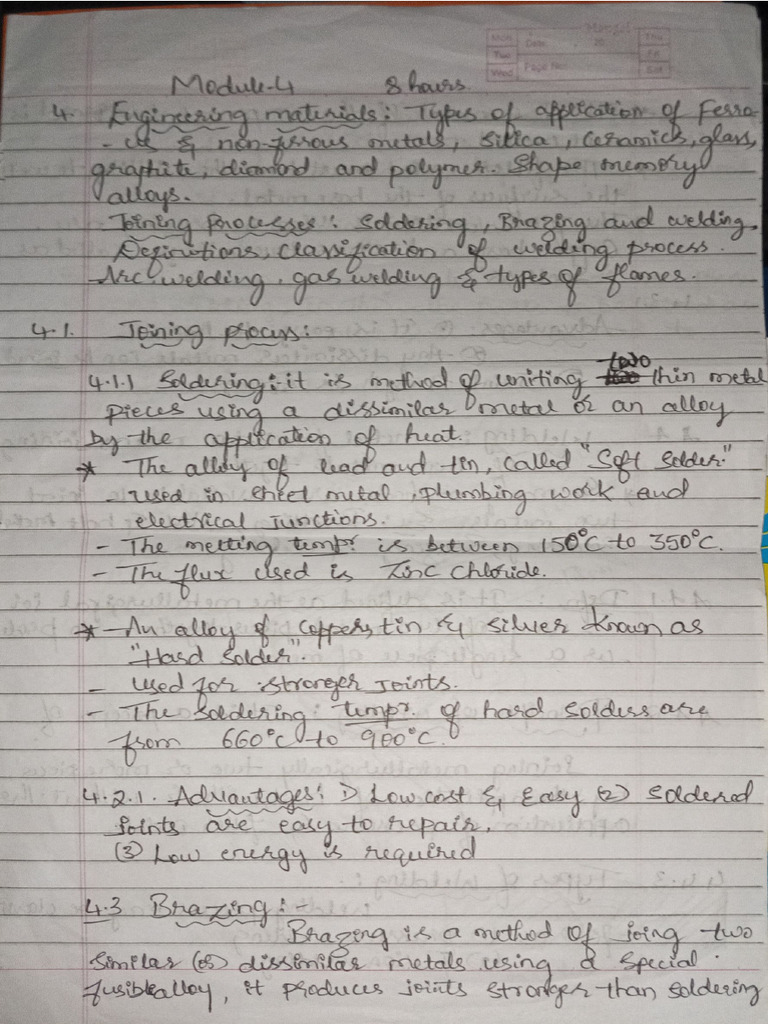 Mon Tue Wed
Date
Page No:
Thu Fri Sat
Module-4 8 hours.
4. Engineering materials: Types of application of Ferro
-us & non-ferrous metals, silica, ceramics, glass,
graphite, diamond and polymer. Shape memory
alloys.
Joining Processes: Soldering, Brazing and welding,
Definitions, classification of welding process.
Arc welding, gas welding & types of flames.
4.1. Joining process:
4.1.1 Soldering: it is method of uniting two thin metal
pieces using a dissimilar metal or an alloy
by the application of heat.
* The alloy of lead and tin, called "Soft Solder."
- used in sheet metal, plumbing work and
electrical Junctions.
- The melting tempr. is between 150°C to 350°C.
- The flux used is Zinc Chloride.
* - An alloy of copper, tin & silver known as
"Hard Solder".
- used for stronger Joints.
- The Soldering tempr. of hard solders are
from 660°C to 900°C.
4.2.1. Advantages: 1) Low cost & Easy (2) Soldered
joints are easy to repair.
(3) Low energy is required
4.3 Brazing:-
Brazing is a method of joing two
similar (or) dissimilar metals using a special
fusible alloy, it produces joints stronger than soldering